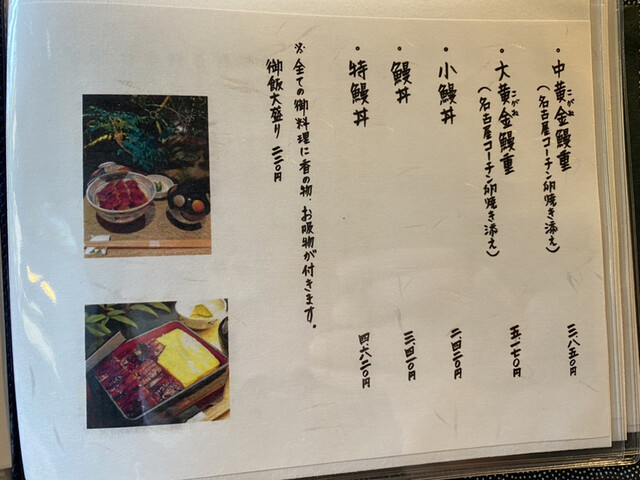 ・中黄金鰻重 三、八五〇円
こがね
(名古屋コーチン卵焼き添え)
・大黄金鰻重 五、一七〇円
こがね
(名古屋コーチン卵焼き添え)
・小鰻丼 二、四二〇円
・鰻丼 三、四一〇円
・特鰻丼 四、六二〇円
※全ての御料理に香の物、お吸物が付きます。
御飯大盛り 二二〇円